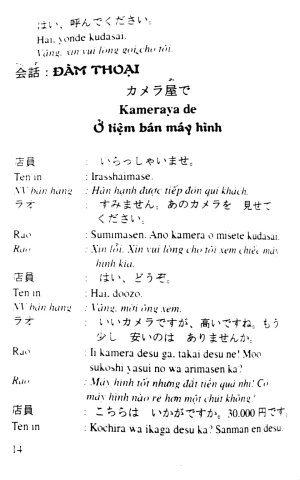 はい、呼んでください。
Hai, yonde kudasai.
Vâng, xin vui lòng gọi cho tôi.
会話 : ĐÀM THOẠI
カメラ屋で
Kameraya de
Ở tiệm bán máy hình
店員 : いらっしゃいませ。
Ten in : Irasshaimase.
NV bán hàng : Hân hạnh được tiếp đón quí khách.
ラオ : すみません。あのカメラを 見せて
ください。
Rao : Sumimasen. Ano kamera o misete kudasai.
Rao : Xin lỗi. Xin vui lòng cho tôi xem chiếc máy
hình kia.
店員 : はい、どうぞ。
Ten in : Hai, doozo.
NV bán hàng : Vâng, mời ông xem.
ラオ : いいカメラですが、高いですね。もう
少し 安いのは ありませんか。
Rao : Ii kamera desu ga, takai desu ne! Moo
sukoshi yasui no wa arimasen ka?
Rao : Máy hình tốt nhưng đắt tiền quá nhỉ! Có
máy hình nào rẻ hơn một chút không?
店員 : こちらは いかがですか。30.000 円です。
Ten in : Kochira wa ikaga desu ka? Sanman en desu.
14